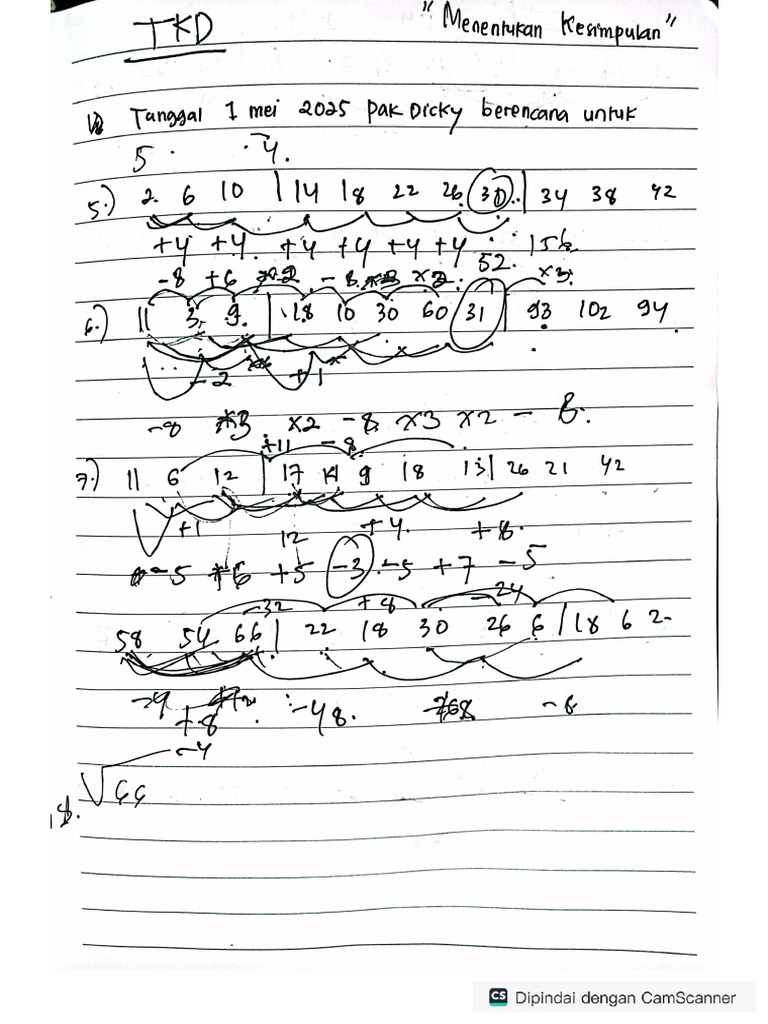 TKD "Menentukan Kesimpulan"
Tanggal 1 mei 2025 pak Dicky berencana untuk
5. 4.
5.) 2 6 10 | 14 18 22 26 30 | 34 38 42
+4 +4 +4 +4 +4 +4
52.
-8 +6 -8 x2 x3
6.) 11 3 9 | 18 10 30 60 31 | 93 102 94
-2 +1
-8 x3 x2 -8 x3 x2 - 8.
+11 -8
7.) 11 6 12 | 17 14 9 18 13 | 26 21 42
+1 12 +4. +8.
-5 +6 +5 -3 -5 +7 -5
-32 +8 -24
58 54 66 | 22 18 30 26 6 | 18 6 2
+8 -48.
-4
√66
CS Dipindai dengan CamScanner